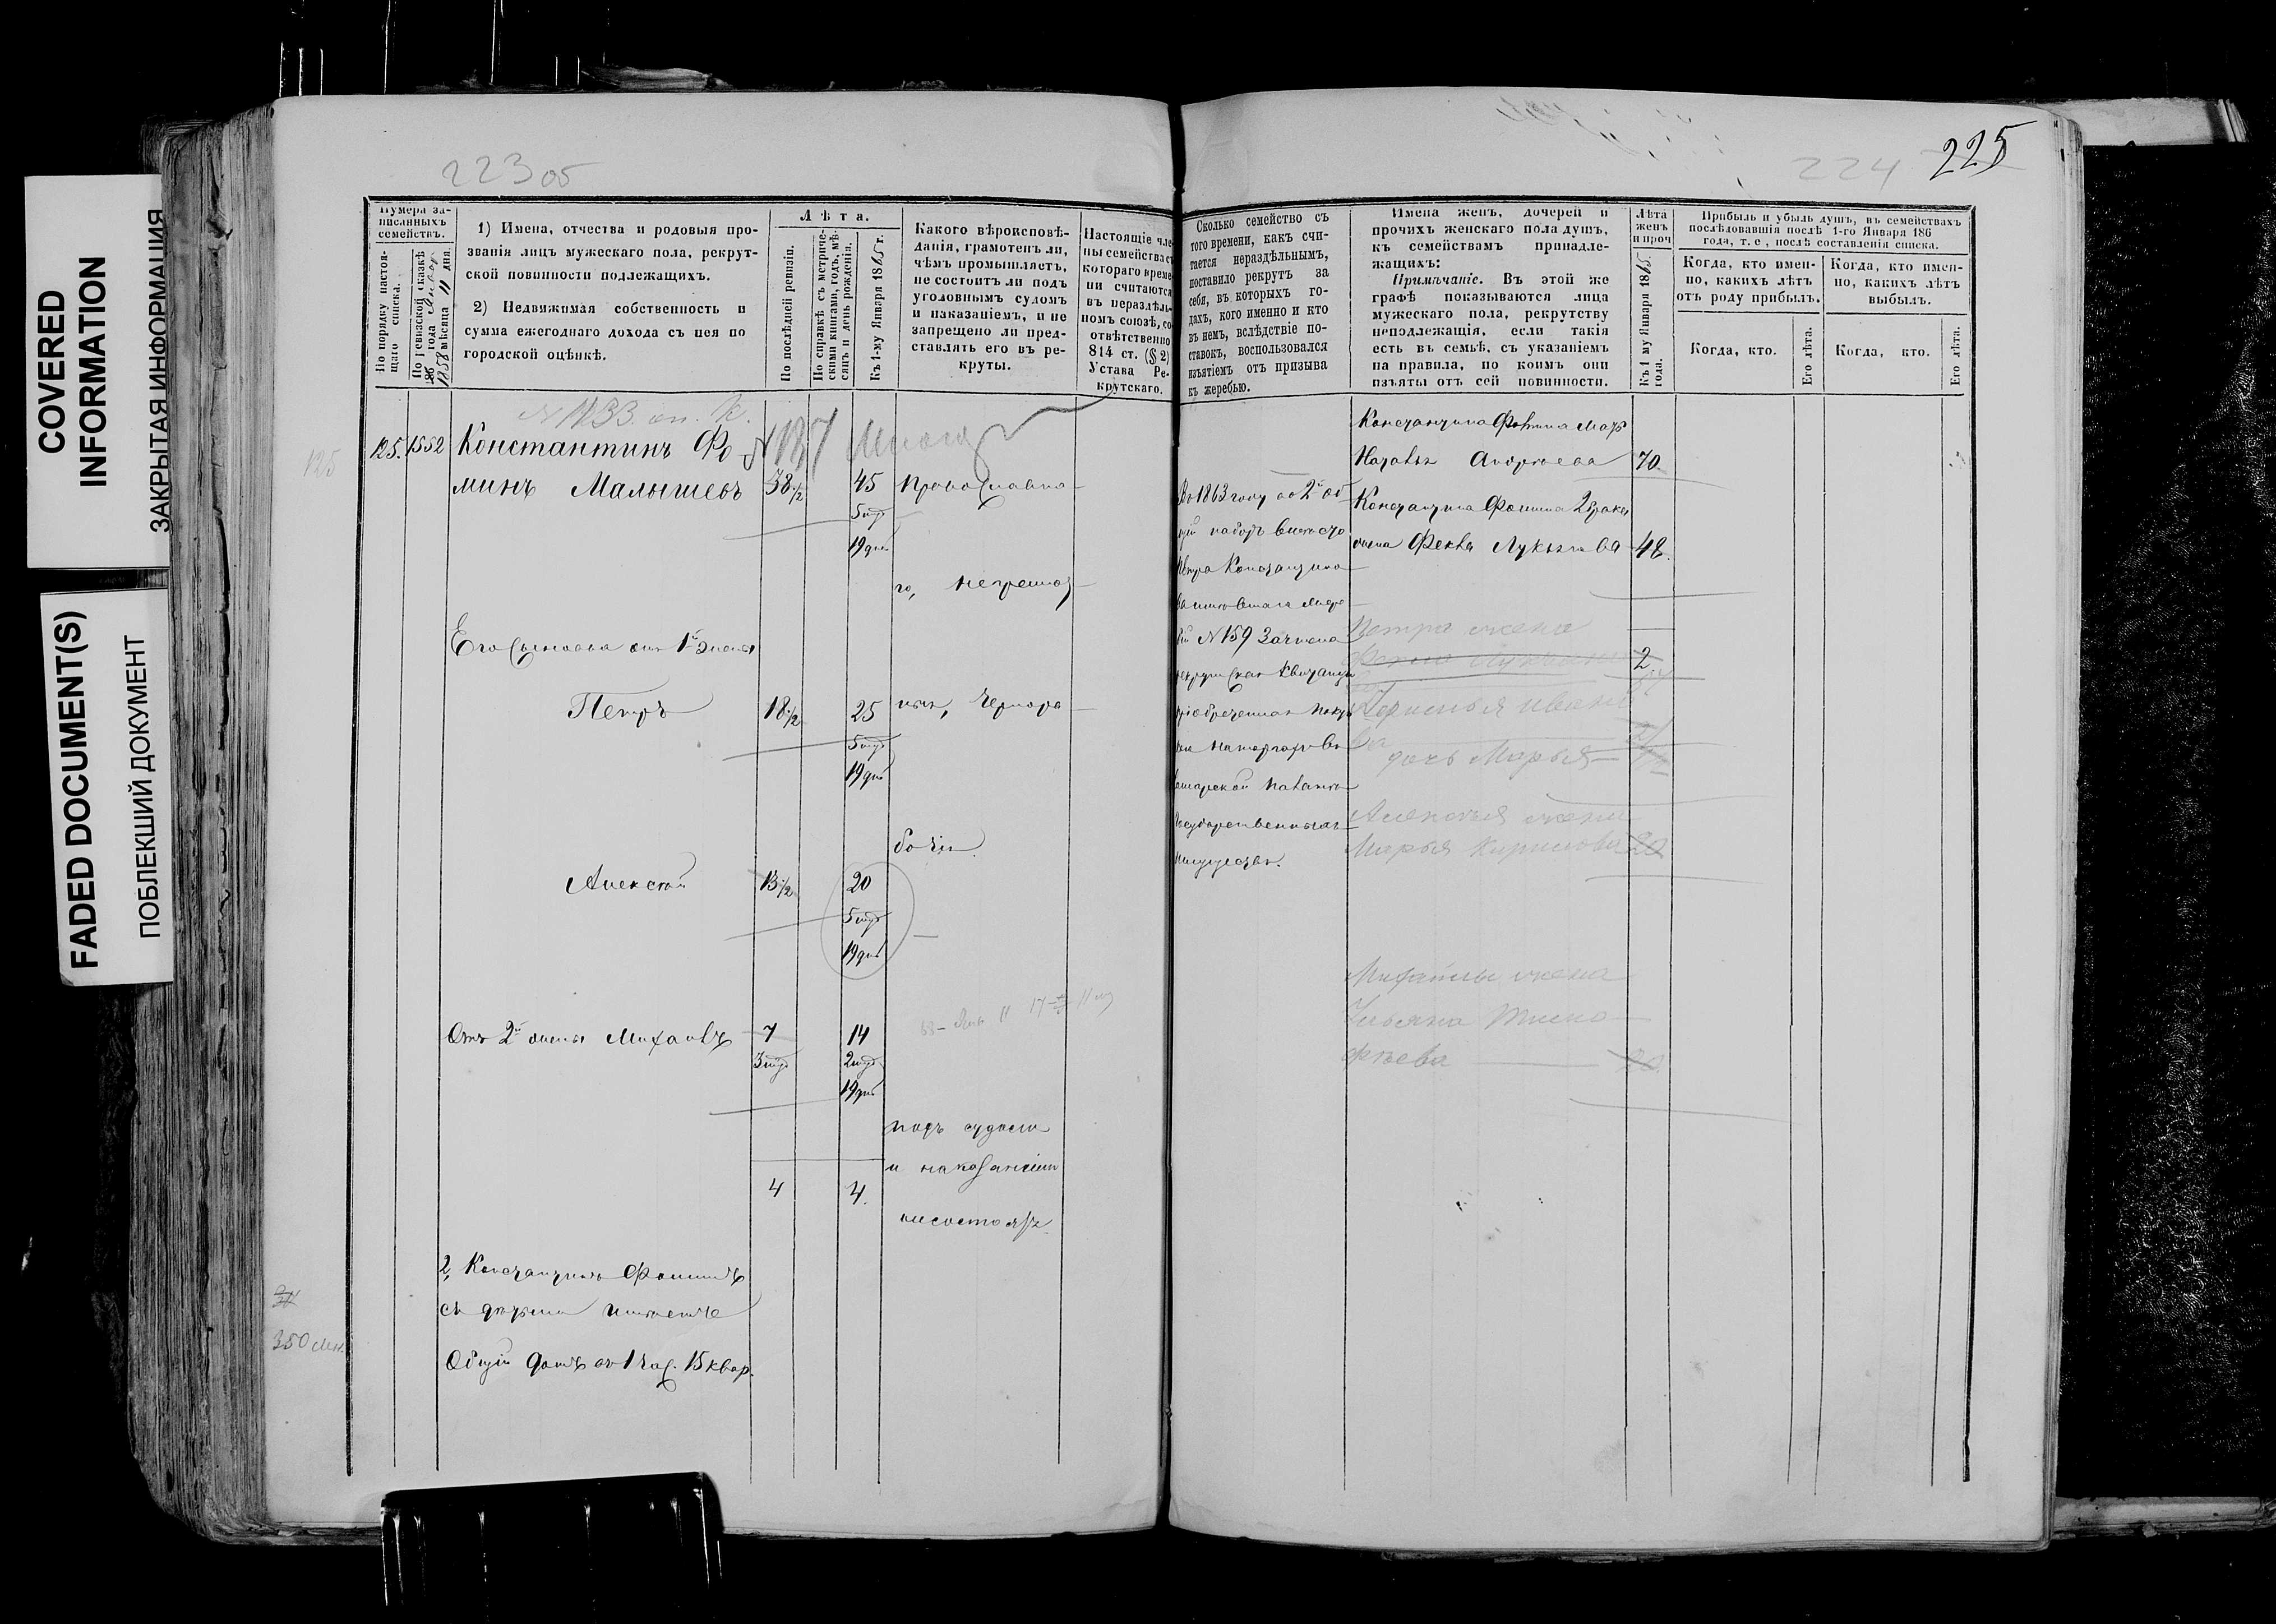 COVERED
INFORMATION
ЗАКРЫТАЯ ИНФОРМАЦИЯ
FADED DOCUMENT(S)
ПОБЛЕКШИЙ ДОКУМЕНТ
223 об
Нумера за-
писанныхъ
семействъ.
По порядку настоя-
щаго списка.
По ревизской сказкѣ
1858 мѣсяца 11 дня.
1) Имена, отчества и родовыя про-
званія лицъ мужескаго пола, рекрут-
ской повинности подлежащихъ.
2) Недвижимая собственность и
сумма ежегоднаго дохода съ нея по
городской оцѣнкѣ.
Лѣта.
По послѣдней ревизіи.
По справкѣ съ метриче-
скими книгами, годъ, мѣ-
сяцъ и день рожденія.
Къ 1-му Января 1865 г.
Какого вѣроисповѣ-
данія, грамотенъ ли,
чѣмъ промышляетъ,
не состоитъ ли подъ
уголовнымъ судомъ
и наказаніемъ, и не
запрещено ли пред-
ставлять его въ ре-
круты.
Настоящіе чле-
ны семейства съ
котораго време-
ни считаются
въ нераздѣль-
номъ союзѣ, со-
отвѣтственно
814 ст. (§ 2)
Устава Ре-
крутскаго.
125
125. 1552 Константинъ Фо-
минъ Малышевъ 38 1/2 45 православна-
5 мц
19 дне
го, неграмот-
Его сыновья отъ 1й жены
Петръ 18 1/2 25 ны, Черноро-
5 мц
19 дне
бочіи.
Алексей 13 1/2 20
5 мц
19 дне
Отъ 2й жены Михаилъ 7 14
3 мц 2 мц
19 дне
подъ судомъ
и наказаніемъ
4 4.
не состоятъ
2, Константинъ Фоминъ
съ детьми имеетъ
Общій домъ въ 1 час. 15 квар.
350
224 225
Сколько семейство съ
того времени, какъ счи-
тается нераздѣльнымъ,
поставило рекрутъ за
себя, въ которыхъ го-
дахъ, кого именно и кто
въ немъ, вслѣдствіе по-
ставокъ, воспользовался
изъятіемъ отъ призыва
къ жеребью.
Имена женъ, дочерей и
прочихъ женскаго пола душъ,
къ семействамъ принадле-
жащихъ:
Примѣчаніе. Въ этой же
графѣ показываются лица
мужескаго пола, рекрутству
неподлежащія, если такія
есть въ семьѣ, съ указаніемъ
на правила, по коимъ они
изъяты отъ сей повинности.
Лѣта
женъ
и проч
Къ 1 му Января 1865.
года.
Прибыль и убыль душъ, въ семействахъ
послѣдовавшія послѣ 1-го Января 186
года, т. е., послѣ составленія списка.
Когда, кто имен-
но, какихъ лѣтъ
отъ роду прибылъ.
Когда, кто имен-
но, какихъ лѣтъ
выбылъ.
Когда, кто.
Его лѣта.
Когда, кто.
Его лѣта.
Константина Фомина мать
Наталья Андреева 70
Въ 1863 году во 2й об-
щій наборъ вместо
Петра Константино-
N 159 Зачтена
рекрутская квитанція
Государственныхъ
Имуществъ.
Константина Фомина 2 брака
жена Фекла Лукьянова 48.
Петра жена
2
дочь Марья
Алексея жена
Марья Кирилова 20
Михаилы жена
Ульяна Тимо-
феева 20